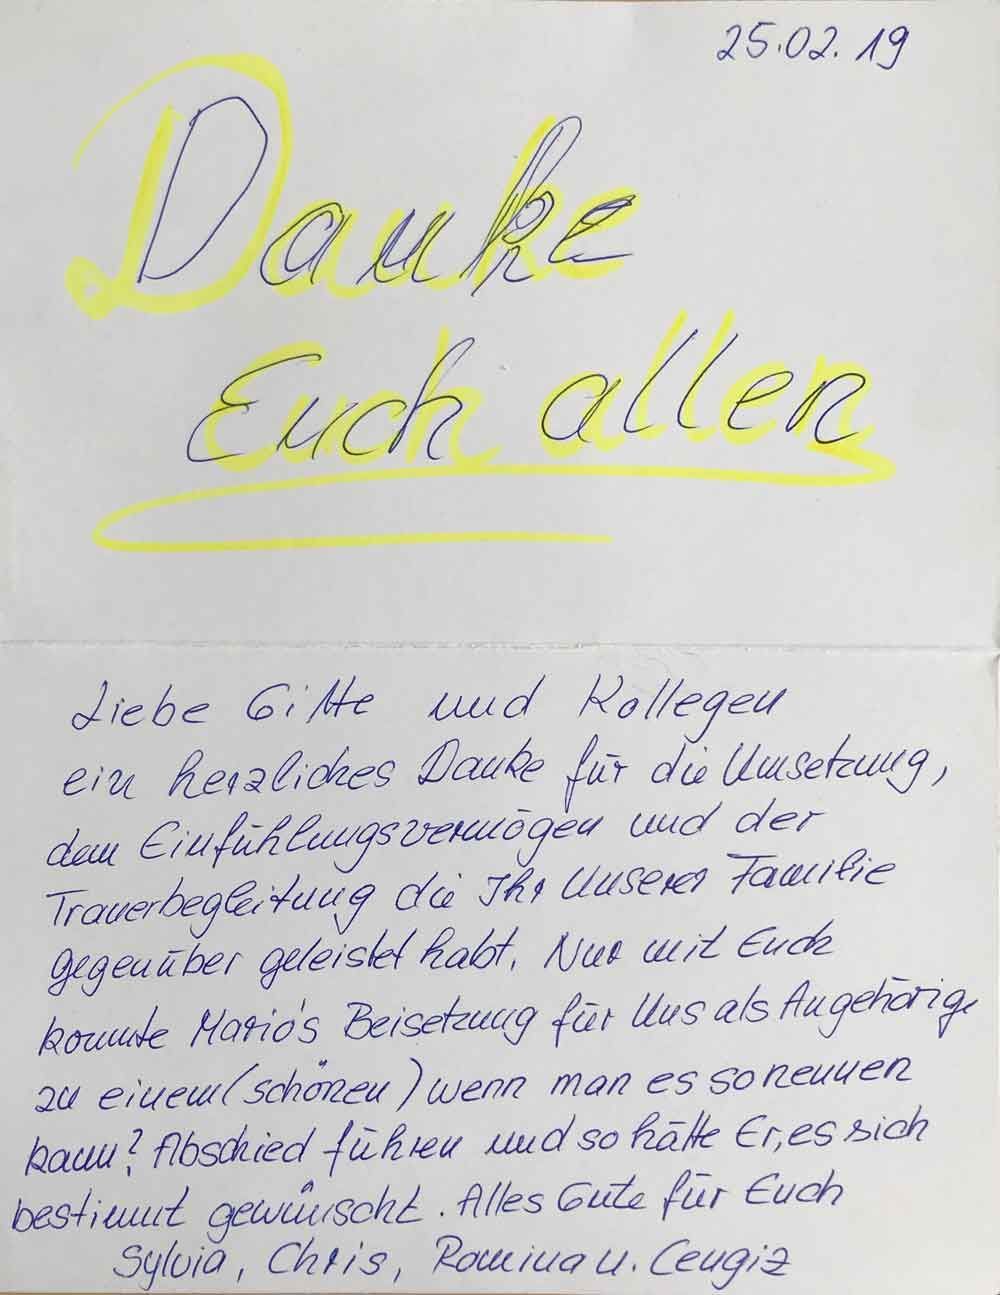 25.02.19
Danke
Euch allen
Liebe Gitte und Kollegen
ein herzliches Danke für die Umsetzung,
dem Einfühlungsvermögen und der
Trauerbegleitung die Ihr Unserer Familie
gegenüber geleistet habt. Nur mit Euch
konnte Mario's Beisetzung für Uns als Angehörige
zu einem (schönen) wenn man es so nennen
kann? Abschied führen und so hätte Er, es sich
bestimmt gewünscht. Alles Gute für Euch
Sylvia, Chris, Romina u. Cengiz